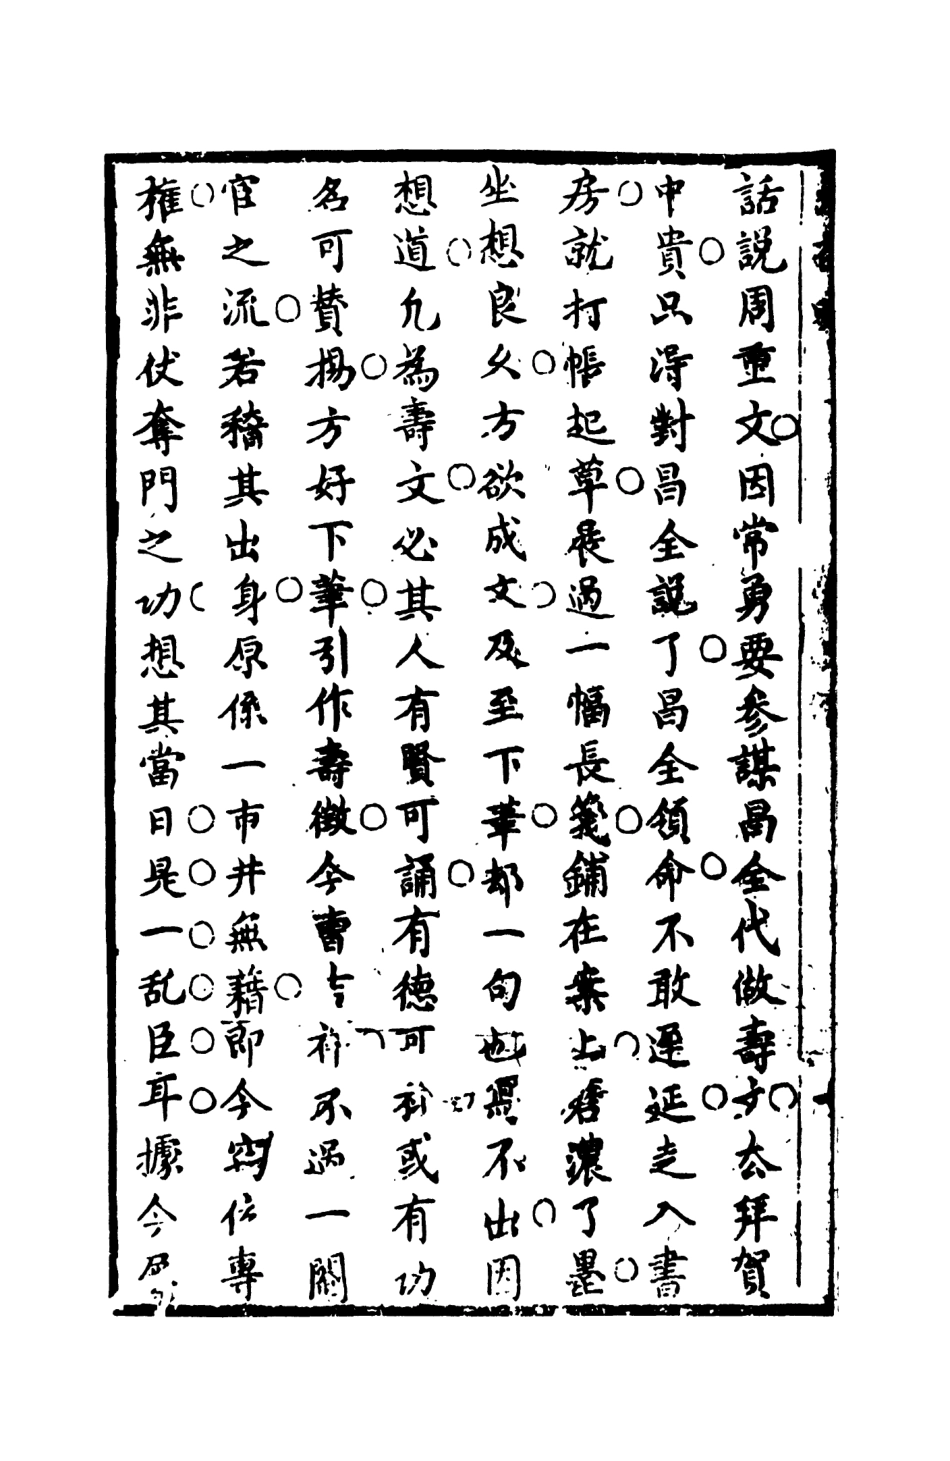 話說周重文因常勇要參謀昌全代做壽文去拜賀
中貴只得對昌全說了昌全領命不敢遲延走入書
房就打帳起草展過一幅長箋鋪在案上磨濃了墨
坐想良久方欲成文及至下筆却一句也寫不出因
想道凢為壽文必其人有賢可誦有德可稱或有功
名可贊揚方好下筆引作壽徵今曹吉祥不過一閹
宦之流若稽其出身原係一市井無藉即今竊位專
權無非伏奪門之功想其當日是一乱臣耳據今